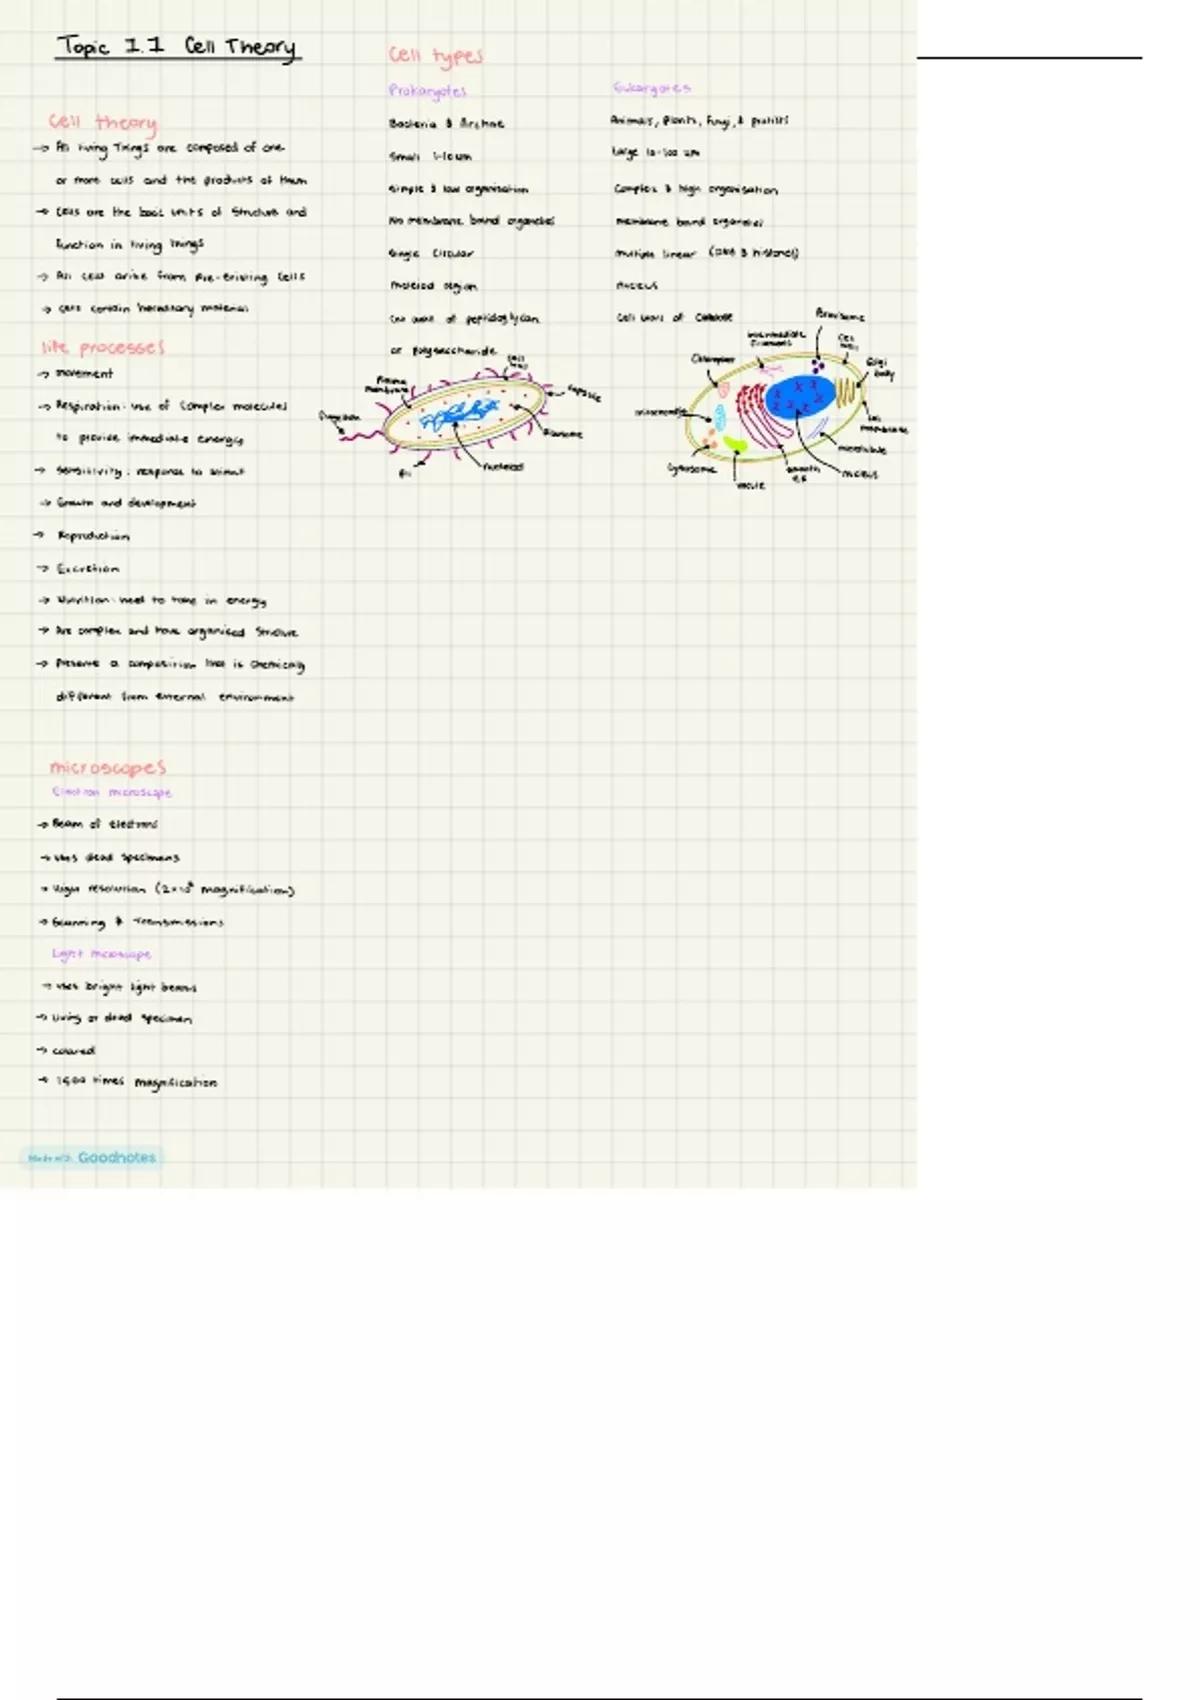 Topic 1.1 Cell Theory
Cell theory
→ All living Things are composed of one
or more cells and the products of them
→ Cells are the basic units of structure and
function in living things
→ All cell arise from pre-existing cells
→ cells contain hereditary material
life processes
→ movement
→ Respiration: use of complex molecules
to provide immediate energy
→ Sensitivity: response to stimuli
→ Growth and development
→ Reproduction
→ Excretion
→ Nutrition: need to take in energy
→ Are complex and have organised structure
→ Preserve a composition that is chemically
different from external environment
microscopes
Electron microscope
→ Beam of electrons
→ uses dead specimens
→ High resolution (2×10 magnification)
→ Scanning & Transmissions
Light microscope
→ uses bright light beams
→ Living or dead specimen
→ coloured
→ 1500 times magnification
Made with Goodnotes
Cell types
Prokaryotes
Bacteria & Archae
Small 1-10um
Simple & low organisation
No membrane bound organelles
Single Circular
nucleoid region
Cell walls of peptidoglycan
or Polysaccharide
Plasma
membrane
Cell
wall
Capsule
Ribosome
nucleoid
Pili
Eukaryotes
Animals, Plants, Fungi, & protists
Large 10-100 um
Complex & high organisation
membrane bound organelles
multiple linear (DNA & histones)
nucleus
Cell walls of cellulose
intermediate
filaments
Peroxisome
Cell
wall
Golgi
body
Cell
membrane
microtubule
nucleus
smooth
ER
vacuole